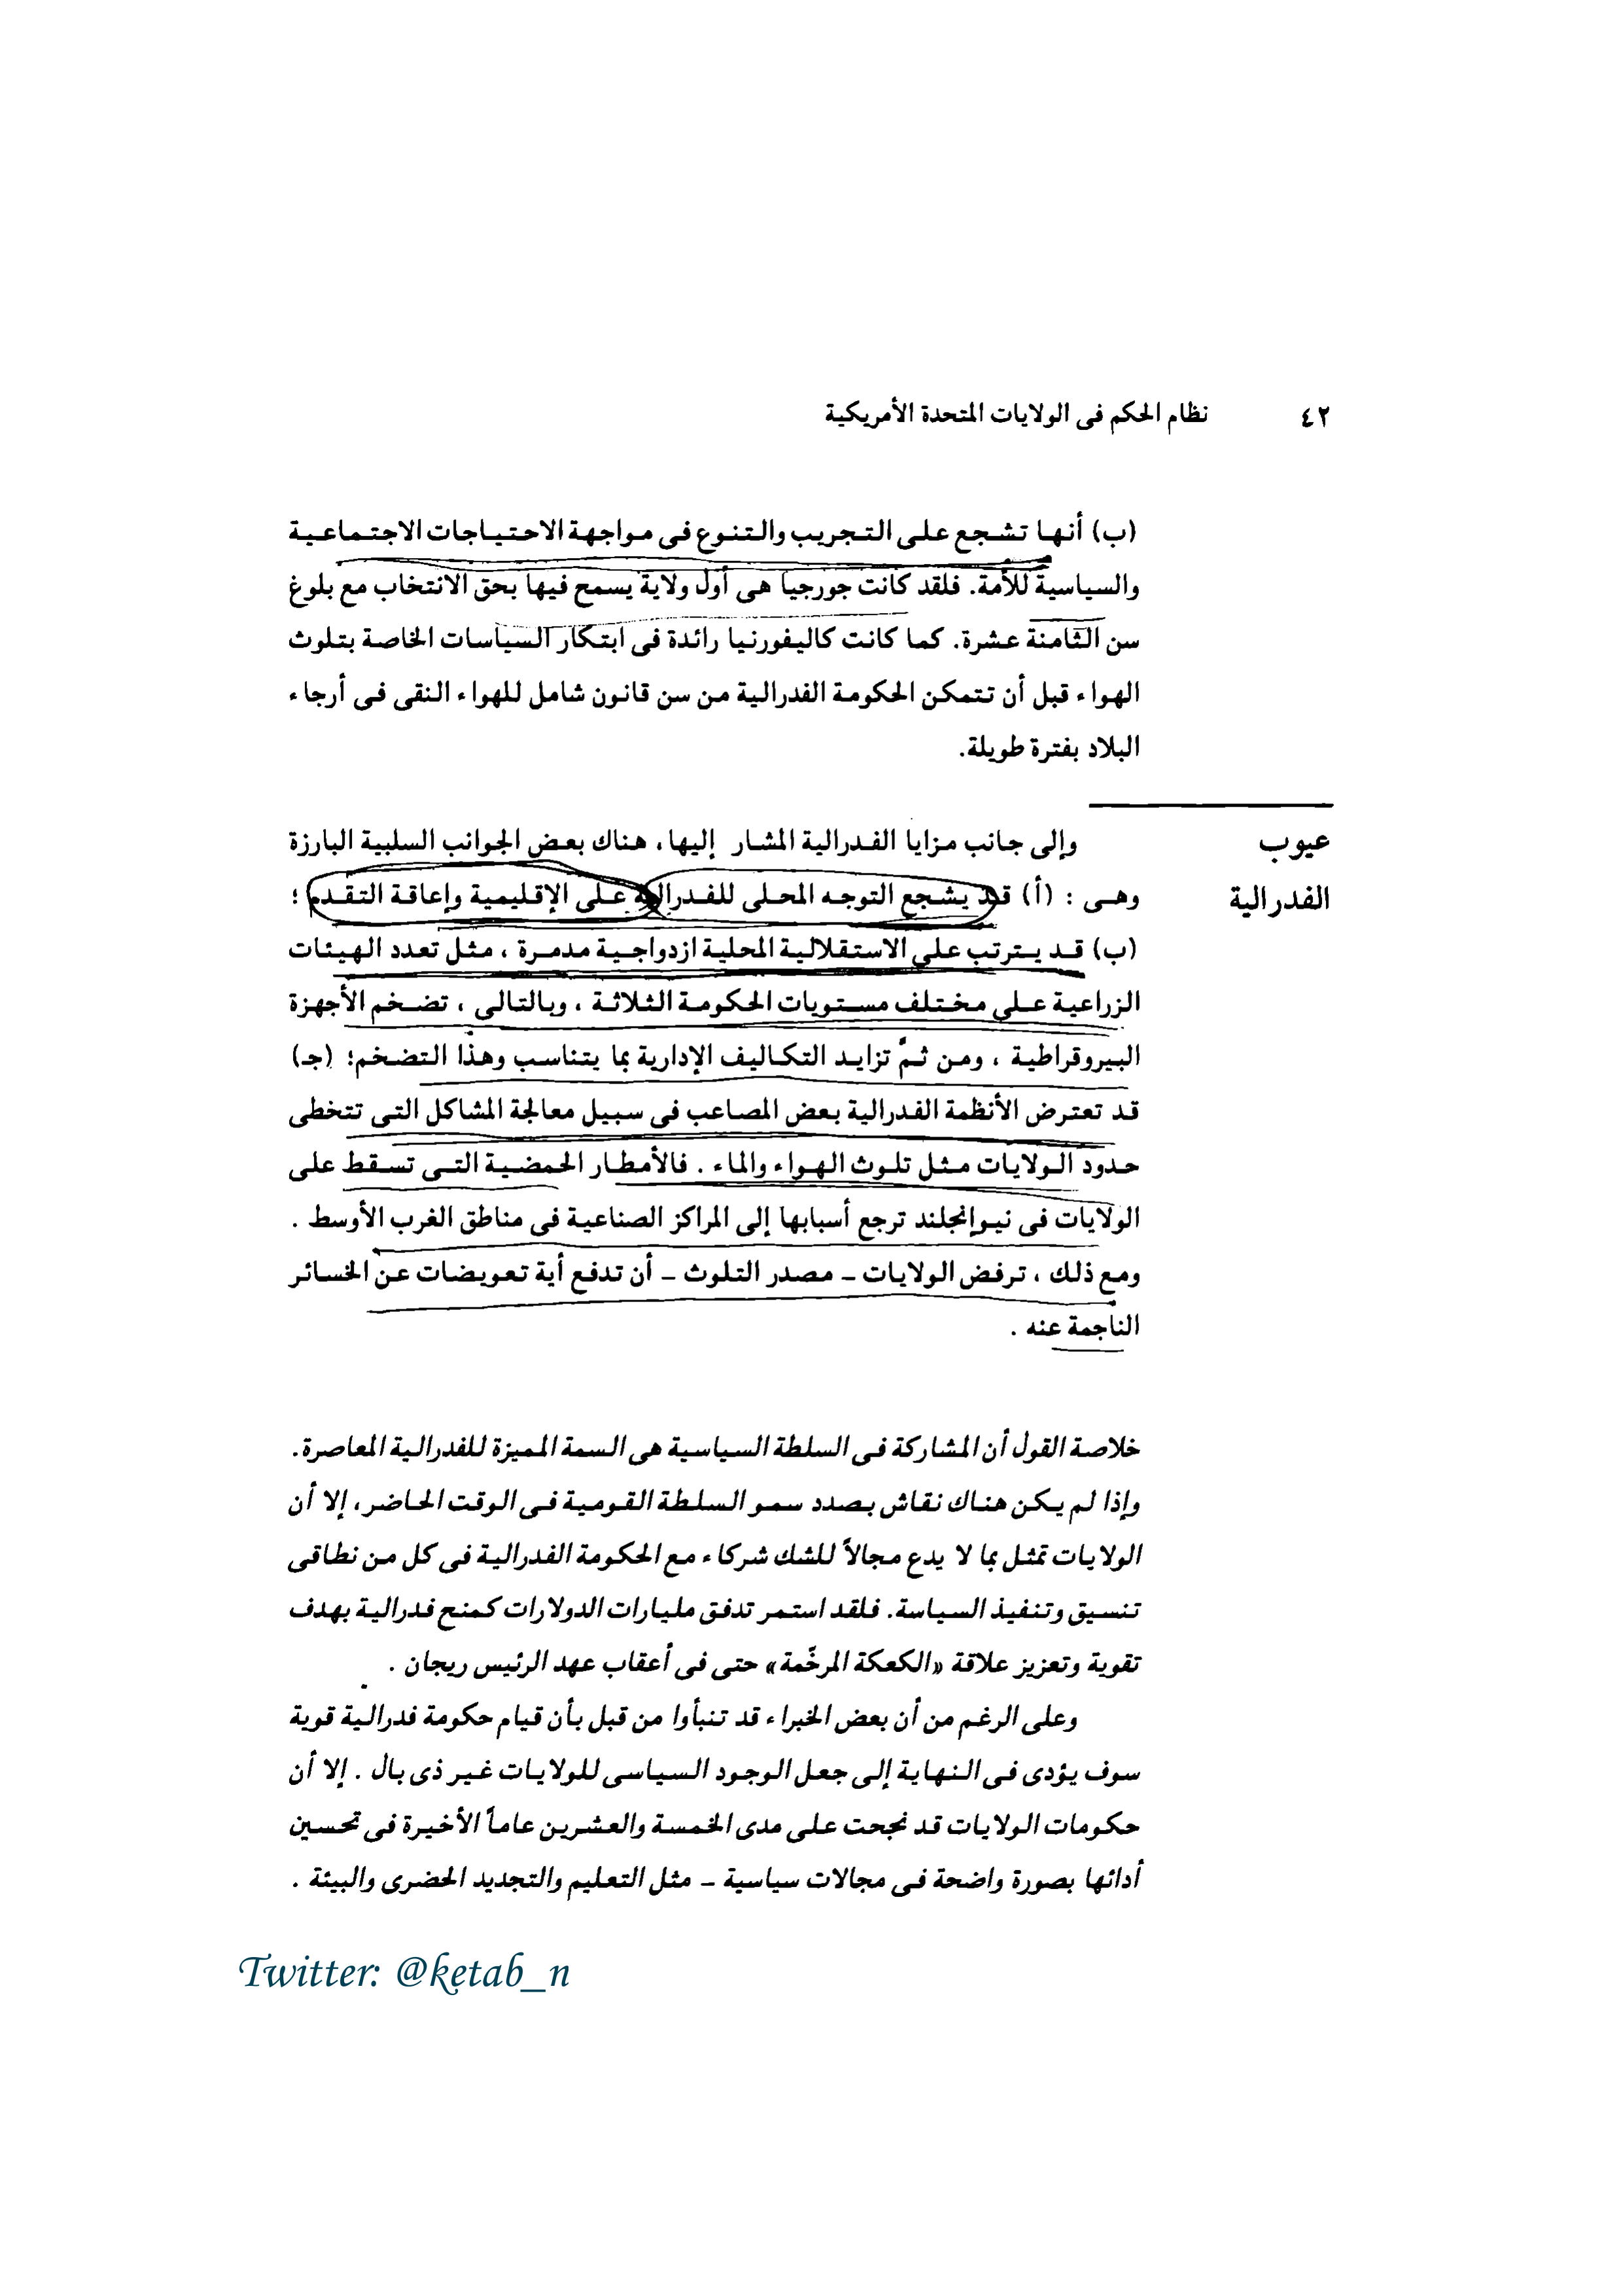 ٤٢ نظام الحكم فى الولايات المتحدة الأمريكية
(ب) أنها تشجع على التجريب والتنوع فى مواجهة الاحتياجات الاجتماعية
والسياسية للأمة. فلقد كانت جورجيا هى أول ولاية يسمح فيها بحق الانتخاب مع بلوغ
سن الثامنة عشرة. كما كانت كاليفورنيا رائدة فى ابتكار السياسات الخاصة بتلوث
الهواء قبل أن تتمكن الحكومة الفدرالية من سن قانون شامل للهواء النقى فى أرجاء
البلاد بفترة طويلة.
عيوب
الفدرالية
وإلى جانب مزايا الفدرالية المشار إليها، هناك بعض الجوانب السلبية البارزة
وهى : (أ) قد يشجع التوجه المحلى للفدرالية على الإقليمية وإعاقة التقدم ؛
(ب) قد يترتب على الاستقلالية المحلية ازدواجية مدمرة ، مثل تعدد الهيئات
الزراعية على مختلف مستويات الحكومة الثلاثة ، وبالتالى ، تضخم الأجهزة
البيروقراطية ، ومن ثمّ تزايد التكاليف الإدارية بما يتناسب وهذا التضخم؛ (جـ)
قد تعترض الأنظمة الفدرالية بعض المصاعب فى سبيل معالجة المشاكل التى تتخطى
حدود الولايات مثل تلوث الهواء والماء . فالأمطار الحمضية التى تسقط على
الولايات فى نيوإنجلند ترجع أسبابها إلى المراكز الصناعية فى مناطق الغرب الأوسط .
ومع ذلك ، ترفض الولايات – مصدر التلوث – أن تدفع أية تعويضات عن الخسائر
الناجمة عنه .
خلاصة القول أن المشاركة فى السلطة السياسية هى السمة المميزة للفدرالية المعاصرة.
وإذا لم يكن هناك نقاش بصدد سمو السلطة القومية فى الوقت الحاضر، إلا أن
الولايات تمثل بما لا يدع مجالاً للشك شركاء مع الحكومة الفدرالية فى كل من نطاقى
تنسيق وتنفيذ السياسة. فلقد استمر تدفق مليارات الدولارات كمنح فدرالية بهدف
تقوية وتعزيز علاقة «الكعكة المرخّمة» حتى فى أعقاب عهد الرئيس ريجان .
وعلى الرغم من أن بعض الخبراء قد تنبأوا من قبل بأن قيام حكومة فدرالية قوية
سوف يؤدى فى النهاية إلى جعل الوجود السياسى للولايات غير ذى بال . إلا أن
حكومات الولايات قد نجحت على مدى الخمسة والعشرين عاماً الأخيرة فى تحسين
أدائها بصورة واضحة فى مجالات سياسية – مثل التعليم والتجديد الحضرى والبيئة .
Twitter: @ketab_n